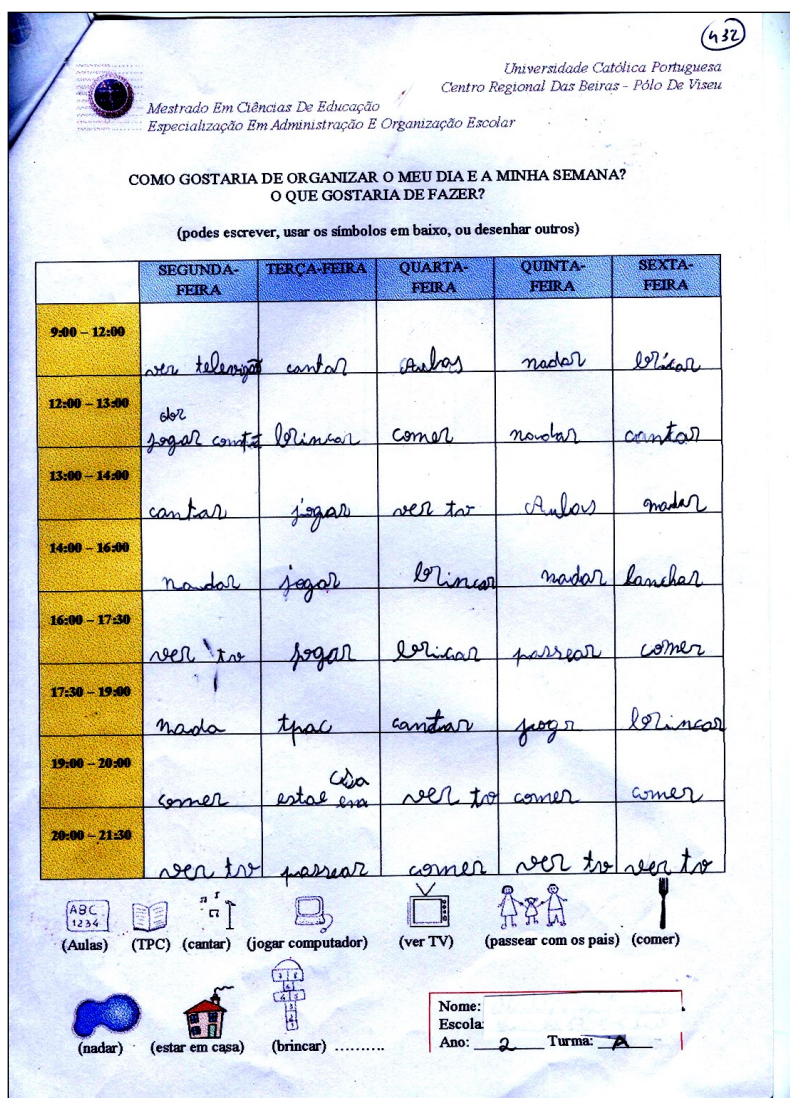 432
Universidade Católica Portuguesa
Centro Regional Das Beiras - Pólo De Viseu
Mestrado Em Ciências De Educação
Especialização Em Administração E Organização Escolar
COMO GOSTARIA DE ORGANIZAR O MEU DIA E A MINHA SEMANA?
O QUE GOSTARIA DE FAZER?
(podes escrever, usar os símbolos em baixo, ou desenhar outros)
SEGUNDA-FEIRA TERÇA-FEIRA QUARTA-FEIRA QUINTA-FEIRA SEXTA-FEIRA
9:00 – 12:00 ver cantar Aulas nadar bricar
12:00 – 13:00 jogar brincar comer nadar cantar
13:00 – 14:00 cantar jogar ver tv Aulas nadar
14:00 – 16:00 nadar jogar brincar nadar lanchar
16:00 – 17:30 ver tv jogar bricar passear comer
17:30 – 19:00 nada tpac cantar jogr brincar
19:00 – 20:00 comer casa ver tv comer comer
20:00 – 21:30 ver tv passear comer ver tv ver tv
ABC
1234
(Aulas) (TPC) (cantar) (jogar computador) (ver TV) (passear com os pais) (comer)
(nadar) (estar em casa) (brincar) ..........
Nome:
Escola:
Ano: 2 Turma: A